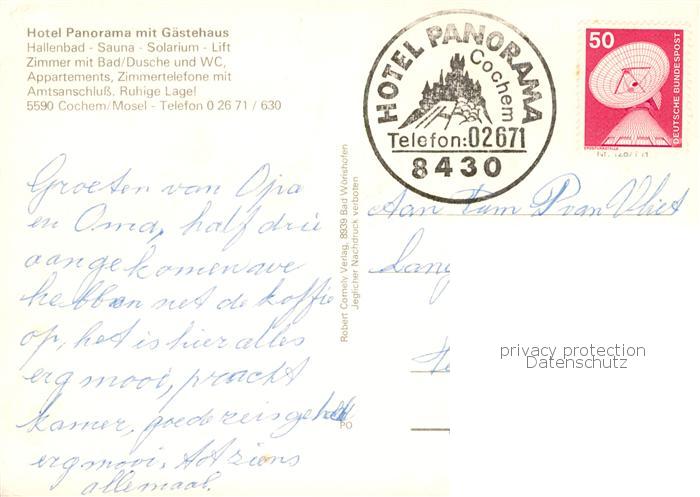 Hotel Panorama mit Gästehaus
Hallenbad - Sauna - Solarium - Lift
Zimmer mit Bad/Dusche und WC,
Appartements, Zimmertelefone mit
Amtsanschluß. Ruhige Lage!
5590 Cochem/Mosel - Telefon 0 26 71 / 630
HOTEL PANORAMA
Cochem
Telefon: 02671
8430
50
DEUTSCHE BUNDESPOST
Groeten van Opa
en Oma, half drie
aangekomen we
hebben net de koffie
op, het is hier alles
erg mooi, pracht
kamer, goede reis gehad
erg mooi. Tot ziens
allemaal.
Robert Cornely Verlag, 8939 Bad Wörishofen
Jeglicher Nachdruck verboten
PO
Aan Fam P van Vliet
Lang
privacy protection
Datenschutz